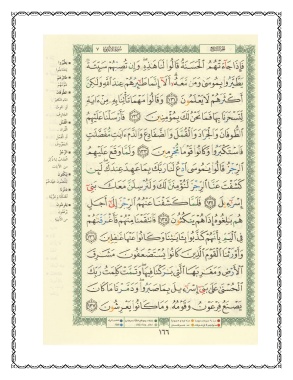 فَإِذَا جَآءَتۡهُمُ ٱلۡحَسَنَةُ قَالُواْ لَنَا هَٰذِهِۦۖ وَإِن تُصِبۡهُمۡ سَيِّئَةٞ
يَطَّيَّرُواْ بِمُوسَىٰ وَمَن مَّعَهُۥٓۗ أَلَآ إِنَّمَا طَٰٓئِرُهُمۡ عِندَ ٱللَّهِ وَلَٰكِنَّ
أَكۡثَرَهُمۡ لَا يَعۡلَمُونَ ١٣١ وَقَالُواْ مَهۡمَا تَأۡتِنَا بِهِۦ مِنۡ ءَايَةٖ
لِّتَسۡحَرَنَا بِهَا فَمَا نَحۡنُ لَكَ بِمُؤۡمِنِينَ ١٣٢ فَأَرۡسَلۡنَا عَلَيۡهِمُ
ٱلطُّوفَانَ وَٱلۡجَرَادَ وَٱلۡقُمَّلَ وَٱلضَّفَادِعَ وَٱلدَّمَ ءَايَٰتٖ مُّفَصَّلَٰتٖ
فَٱسۡتَكۡبَرُواْ وَكَانُواْ قَوۡمٗا مُّجۡرِمِينَ ١٣٣ وَلَمَّا وَقَعَ عَلَيۡهِمُ
ٱلرِّجۡزُ قَالُواْ يَٰمُوسَى ٱدۡعُ لَنَا رَبَّكَ بِمَا عَهِدَ عِندَكَۖ لَئِن
كَشَفۡتَ عَنَّا ٱلرِّجۡزَ لَنُؤۡمِنَنَّ لَكَ وَلَنُرۡسِلَنَّ مَعَكَ بَنِيٓ
إِسۡرَٰٓءِيلَ ١٣٤ فَلَمَّا كَشَفۡنَا عَنۡهُمُ ٱلرِّجۡزَ إِلَىٰٓ أَجَلٍ
هُم بَٰلِغُوهُ إِذَا هُمۡ يَنكُثُونَ ١٣٥ فَٱنتَقَمۡنَا مِنۡهُمۡ فَأَغۡرَقۡنَٰهُمۡ
فِي ٱلۡيَمِّ بِأَنَّهُمۡ كَذَّبُواْ بِـَٔايَٰتِنَا وَكَانُواْ عَنۡهَا غَٰفِلِينَ ١٣٦
وَأَوۡرَثۡنَا ٱلۡقَوۡمَ ٱلَّذِينَ كَانُواْ يُسۡتَضۡعَفُونَ مَشَٰرِقَ
ٱلۡأَرۡضِ وَمَغَٰرِبَهَا ٱلَّتِي بَٰرَكۡنَا فِيهَاۖ وَتَمَّتۡ كَلِمَتُ رَبِّكَ
ٱلۡحُسۡنَىٰ عَلَىٰ بَنِيٓ إِسۡرَٰٓءِيلَ بِمَا صَبَرُواْۖ وَدَمَّرۡنَا مَا كَانَ
يَصۡنَعُ فِرۡعَوۡنُ وَقَوۡمُهُۥ وَمَا كَانُواْ يَعۡرِشُونَ ١٣٧
١٦٦